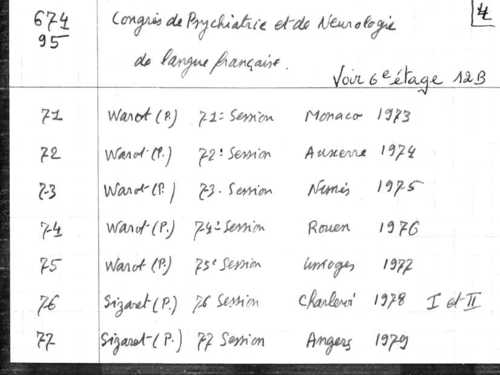 674 Congrès de Psychiatrie et de Neurologie 4
95 de langue française.
Voir 6e étage 12B
71 Warot (P.) 71e Session Monaco 1973
72 Warot (P.) 72e Session Auxerre 1974
73 Warot (P.) 73. Session Nimes 1975
74 Warot (P.) 74e Session Rouen 1976
75 Warot (P.) 75e Session Limoges 1977
76 Sizaret (P.) 76 Session 1978 I et II
77 Sizaret (P.) 77 Session Angers 1979